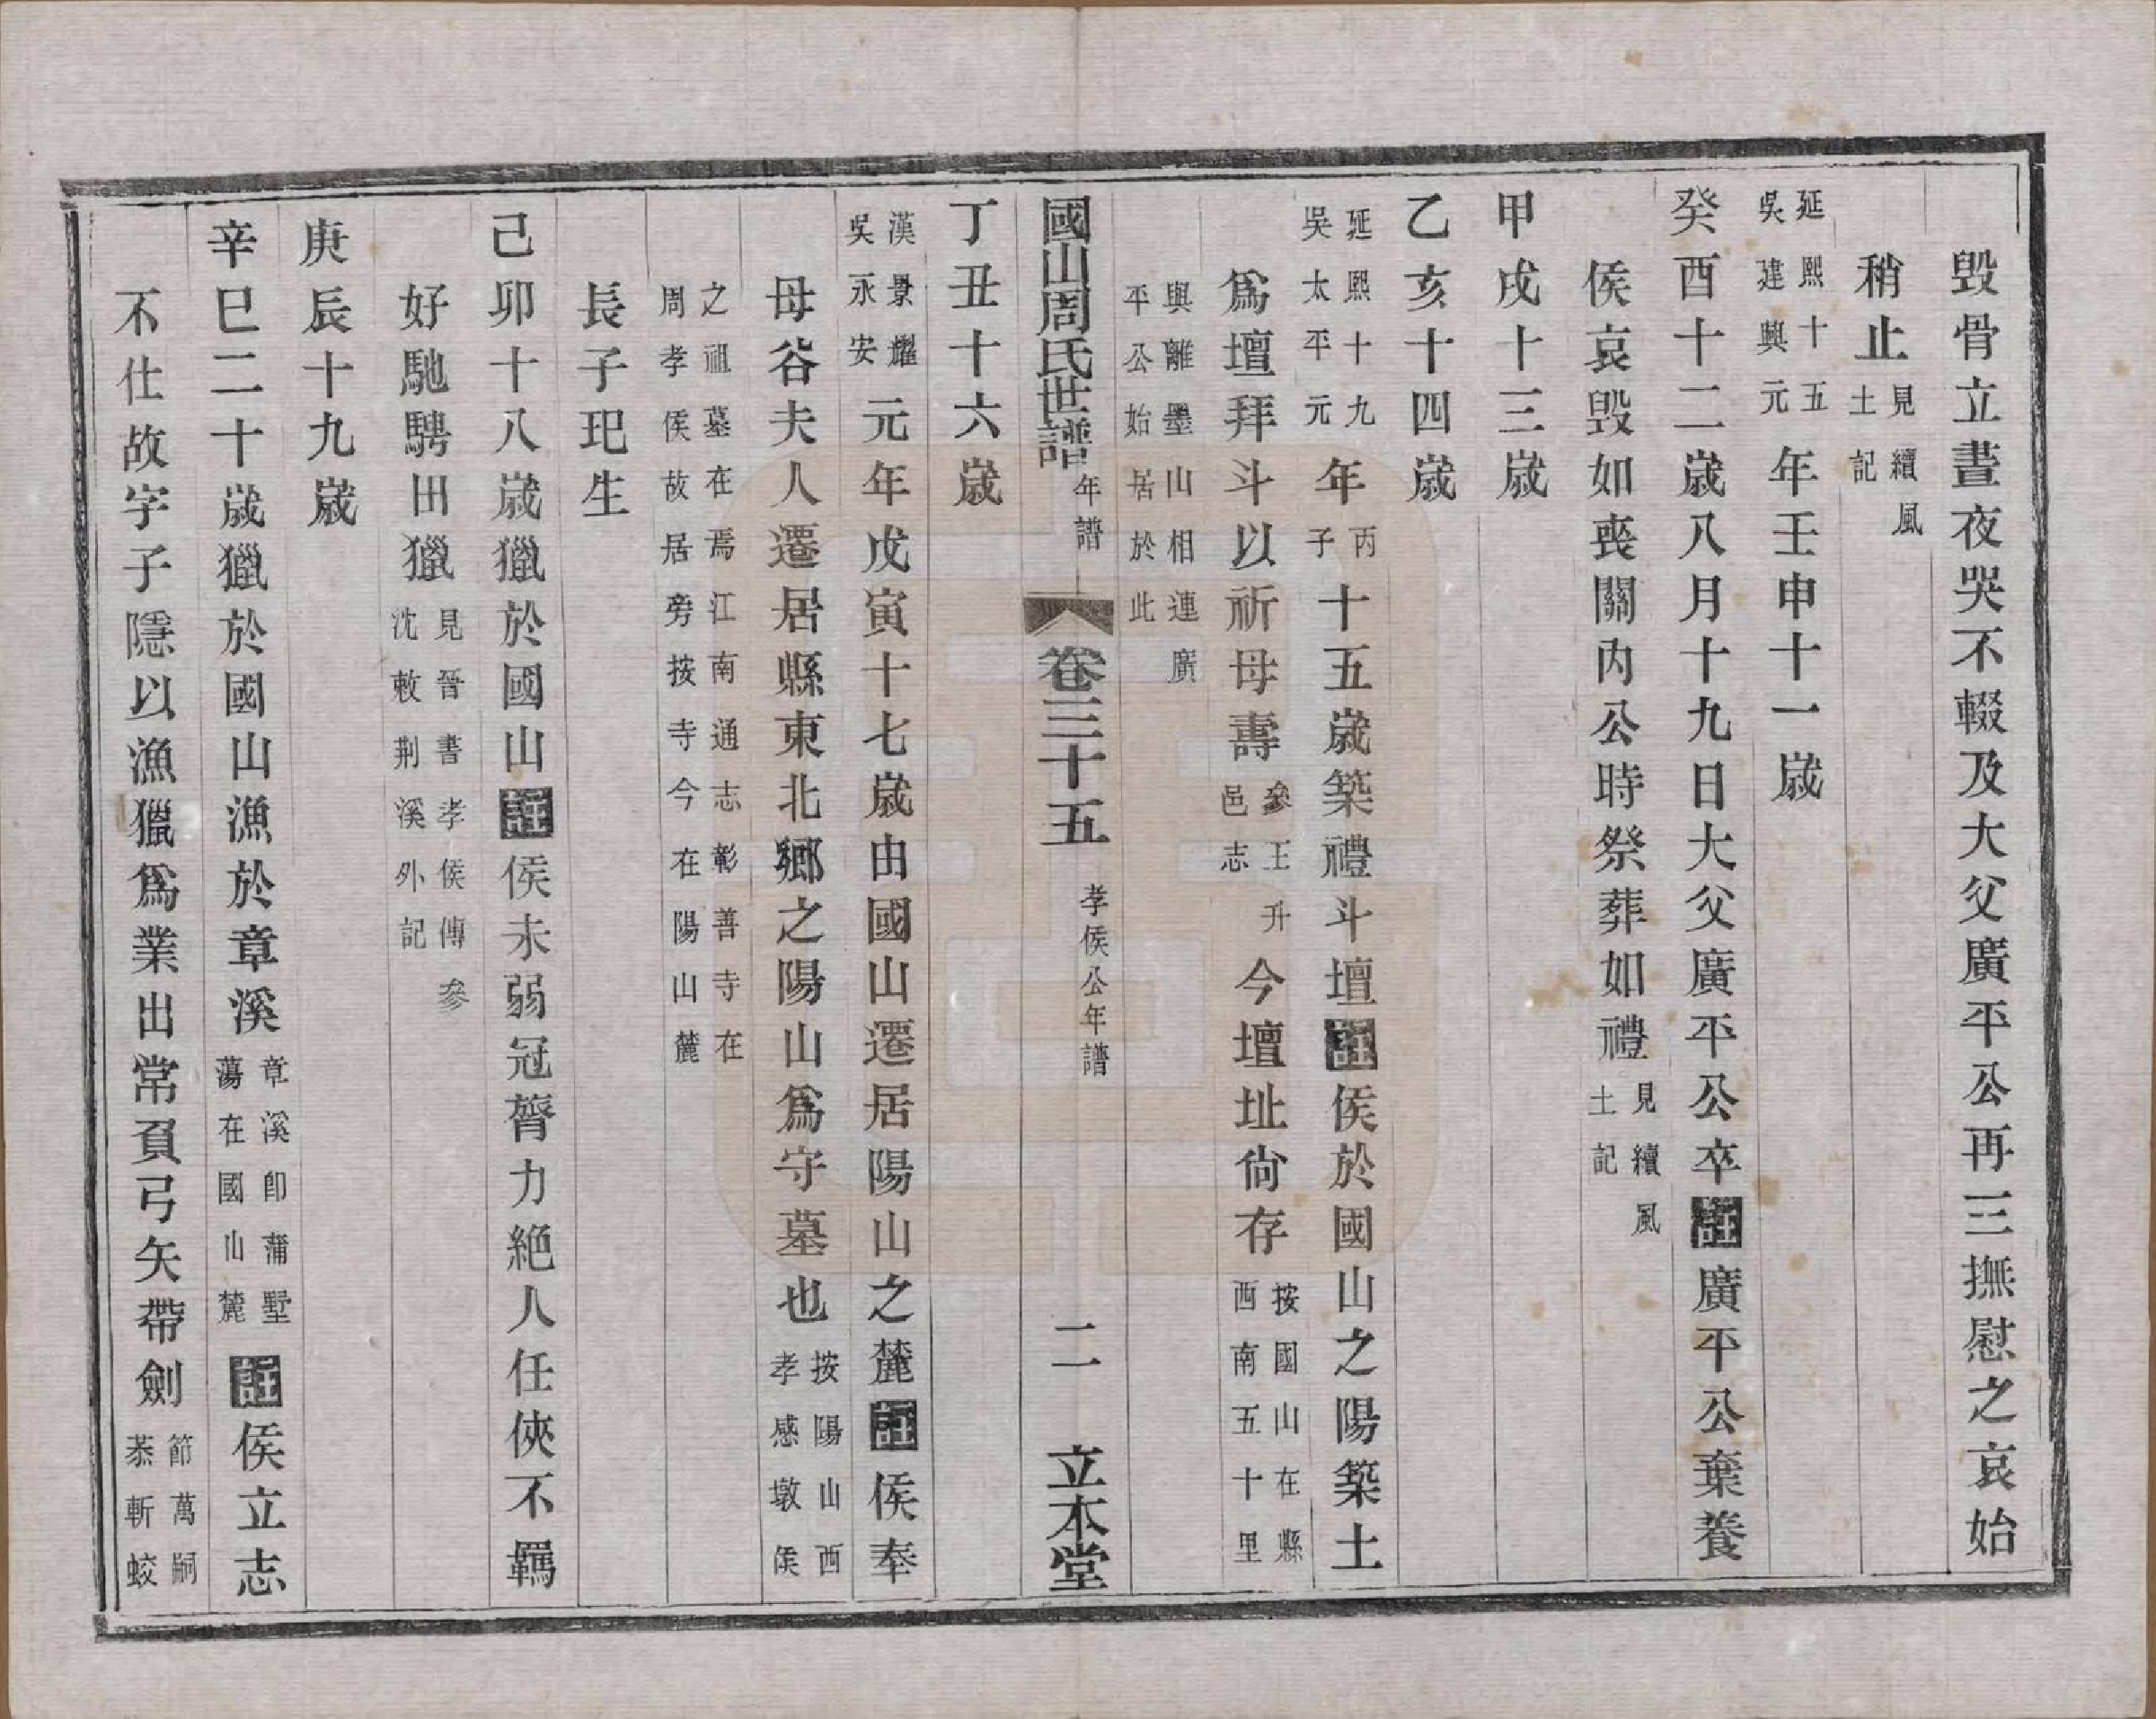 毀骨立晝夜哭不輟及大父廣平公再三撫慰之哀始
稍止見續風土記
延熙十五吳建興元年壬申十一歲
癸酉十二歲八月十九日大父廣平公卒註廣平公棄養
侯哀毀如喪關內公時祭葬如禮見續風土記
甲戌十三歲
乙亥十四歲
延熙十九吳太平元年丙子十五歲築禮斗壇註侯於國山之陽築土
爲壇拜斗以祈母壽參王升邑志今壇址尙存按國山在縣西南五十里
與離墨山相連廣平公始居於此
國山周氏世譜年譜 卷三十五 孝侯公年譜 二 立本堂
丁丑十六歲
漢景耀吳永安元年戊寅十七歲由國山遷居陽山之麓註侯奉
母谷夫人遷居縣東北鄉之陽山爲守墓也按陽山西孝感墩侯
之祖墓在焉江南通志彰善寺在周孝侯故居旁按寺今在陽山麓
長子玘生
己卯十八歲獵於國山註侯未弱冠膂力絕人任俠不羈
好馳騁田獵見晉書孝侯傳參沈敕荆溪外記
庚辰十九歲
辛巳二十歲獵於國山漁於章溪章溪卽蒲墅蕩在國山麓註侯立志
不仕故字子隱以漁獵爲業出常負弓矢帶劍節萬嗣恭斬蛟